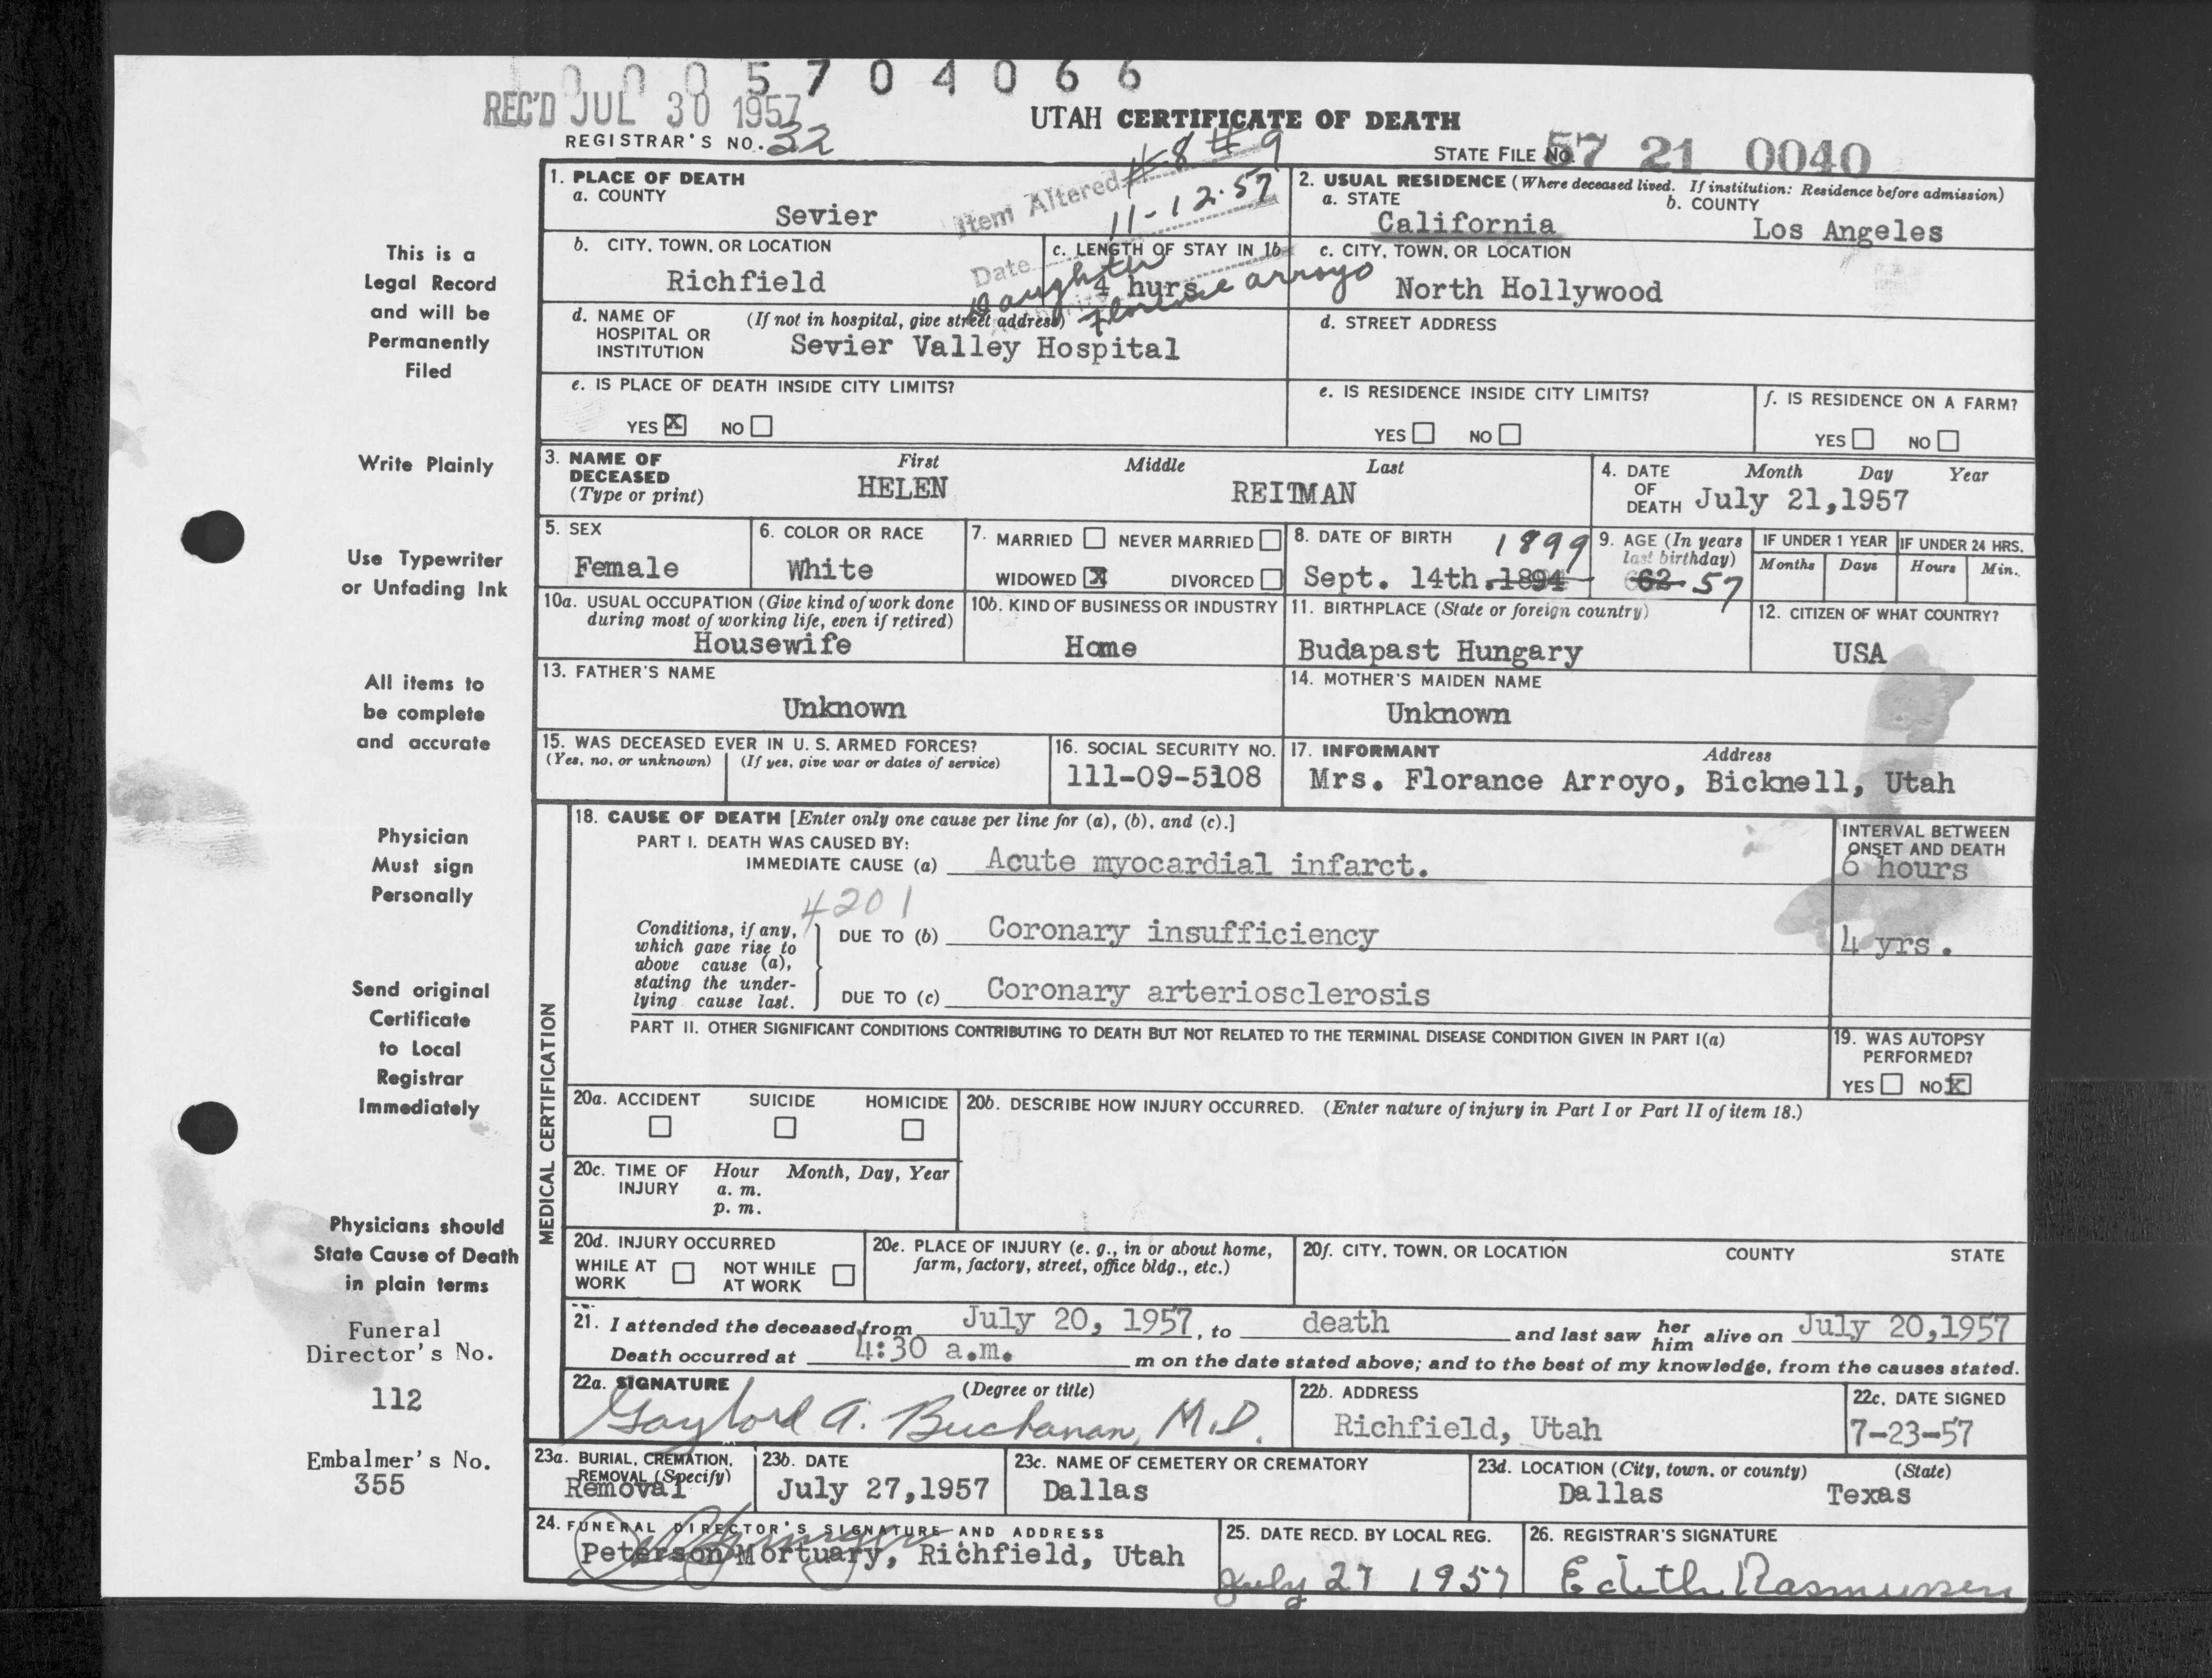 0 0 0 5 7 0 4 0 6 6
REC'D JUL 30 1957
UTAH CERTIFICATE OF DEATH
REGISTRAR'S NO. 32
STATE FILE NO. 57 21 0040
Item Altered #8 #9
Date 11-12-57
Daughter
Florence Arroyo
This is a
Legal Record
and will be
Permanently
Filed
Write Plainly
Use Typewriter
or Unfading Ink
All items to
be complete
and accurate
Physician
Must sign
Personally
Send original
Certificate
to Local
Registrar
Immediately
Physicians should
State Cause of Death
in plain terms
Funeral
Director's No.
112
Embalmer's No.
355
1. PLACE OF DEATH
a. COUNTY
Sevier
2. USUAL RESIDENCE (Where deceased lived. If institution: Residence before admission)
a. STATE b. COUNTY
California Los Angeles
b. CITY, TOWN, OR LOCATION
Richfield
c. LENGTH OF STAY IN 1b
4 hurs
c. CITY, TOWN, OR LOCATION
North Hollywood
d. NAME OF HOSPITAL OR INSTITUTION (If not in hospital, give street address)
Sevier Valley Hospital
d. STREET ADDRESS
e. IS PLACE OF DEATH INSIDE CITY LIMITS?
YES X NO
e. IS RESIDENCE INSIDE CITY LIMITS?
YES NO
f. IS RESIDENCE ON A FARM?
YES NO
3. NAME OF DECEASED (Type or print) First Middle Last
HELEN REITMAN
4. DATE OF DEATH Month Day Year
July 21,1957
5. SEX
Female
6. COLOR OR RACE
White
7. MARRIED NEVER MARRIED
WIDOWED X DIVORCED
8. DATE OF BIRTH 1899
Sept. 14th.1894
9. AGE (In years last birthday)
62 57
IF UNDER 1 YEAR
Months Days
IF UNDER 24 HRS.
Hours Min.
10a. USUAL OCCUPATION (Give kind of work done
during most of working life, even if retired)
Housewife
10b. KIND OF BUSINESS OR INDUSTRY
Home
11. BIRTHPLACE (State or foreign country)
Budapast Hungary
12. CITIZEN OF WHAT COUNTRY?
USA
13. FATHER'S NAME
Unknown
14. MOTHER'S MAIDEN NAME
Unknown
15. WAS DECEASED EVER IN U. S. ARMED FORCES?
(Yes, no, or unknown) (If yes, give war or dates of service)
16. SOCIAL SECURITY NO.
111-09-5108
17. INFORMANT Address
Mrs. Florance Arroyo, Bicknell, Utah
MEDICAL CERTIFICATION
18. CAUSE OF DEATH [Enter only one cause per line for (a), (b), and (c).]
PART I. DEATH WAS CAUSED BY:
IMMEDIATE CAUSE (a) Acute myocardial infarct.
INTERVAL BETWEEN
ONSET AND DEATH
6 hours
4201
Conditions, if any,
which gave rise to
above cause (a),
stating the under-
lying cause last.
DUE TO (b) Coronary insufficiency
4 yrs.
DUE TO (c) Coronary arteriosclerosis
PART II. OTHER SIGNIFICANT CONDITIONS CONTRIBUTING TO DEATH BUT NOT RELATED TO THE TERMINAL DISEASE CONDITION GIVEN IN PART I(a)
19. WAS AUTOPSY
PERFORMED?
YES NO X
20a. ACCIDENT SUICIDE HOMICIDE
20b. DESCRIBE HOW INJURY OCCURRED. (Enter nature of injury in Part I or Part II of item 18.)
20c. TIME OF INJURY Hour Month, Day, Year
a. m.
p. m.
20d. INJURY OCCURRED
WHILE AT WORK NOT WHILE AT WORK
20e. PLACE OF INJURY (e. g., in or about home,
farm, factory, street, office bldg., etc.)
20f. CITY, TOWN, OR LOCATION COUNTY STATE
21. I attended the deceased from July 20, 1957, to death and last saw her him alive on July 20,1957
Death occurred at 4:30 a.m. m on the date stated above; and to the best of my knowledge, from the causes stated.
22a. SIGNATURE (Degree or title)
Gaylord A. Buchanan, M.D.
22b. ADDRESS
Richfield, Utah
22c. DATE SIGNED
7-23-57
23a. BURIAL, CREMATION,
REMOVAL (Specify)
Removal
23b. DATE
July 27,1957
23c. NAME OF CEMETERY OR CREMATORY
Dallas
23d. LOCATION (City, town, or county) (State)
Dallas Texas
24. FUNERAL DIRECTOR'S SIGNATURE AND ADDRESS
Peterson Mortuary, Richfield, Utah
25. DATE RECD. BY LOCAL REG.
July 27 1957
26. REGISTRAR'S SIGNATURE
Edith Rasmussen